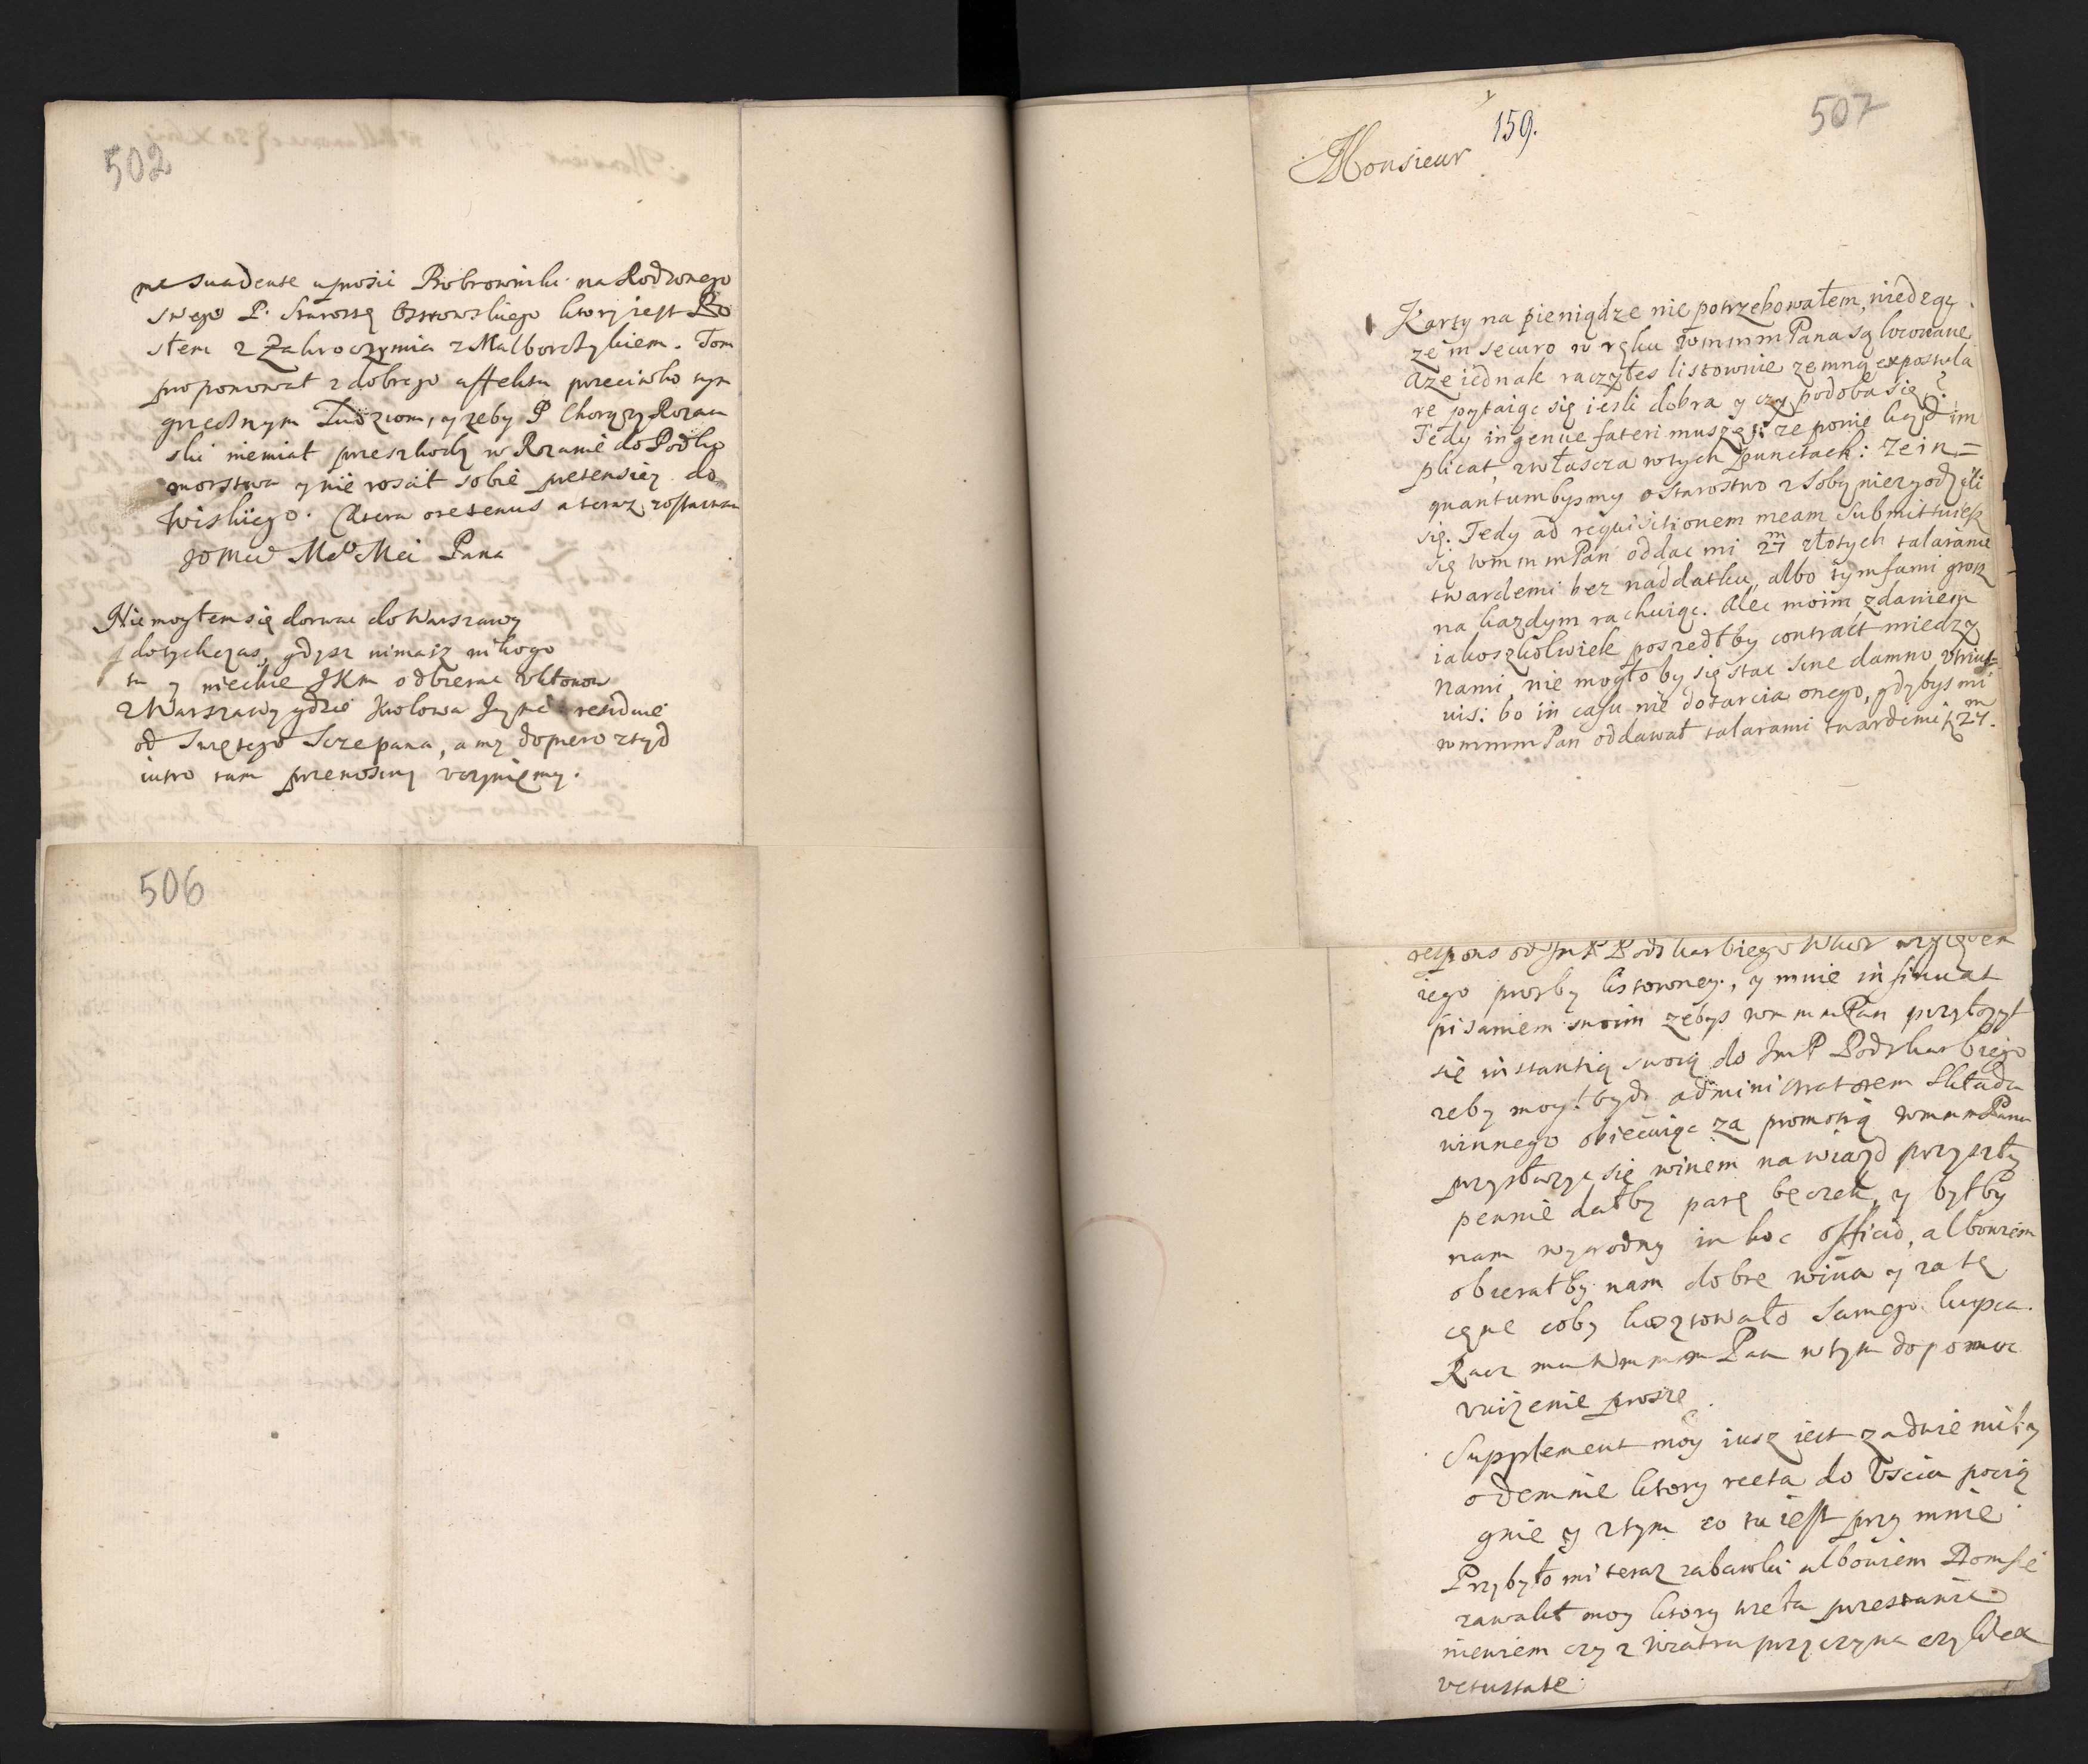 502
me suadente uprosić Bobrowniki na Rodzonego
swego P. Starostę Ostrowskiego ktory iest Po
słem z Zakroczymia z Malborczykiem. Tom
proponował z dobrego affektu przeciwko tym
grzecznym Ludziom, y zeby P Chorązy Rozan
ski niemiał przeszkody w Rozanie do Podko
morstwa y nie roscił sobie pretensiey do
Wiskiego. Cætera oretenus a teraz zostawam
Mei Pana
Nie mogłem się dorwac do Warszawy
dotychczas, gdysz nimasz nikogo
tu y niechce JKm odbierac
z Warszawy gdzie Krolowa Jeymć residuie
od Swiętego Sczepana, a my dopiero ztąd
iutro tam przenosiny uczyniemy.
506
507
159.
Monsieur
Karty na pieniądze nie potrzebowałem, wiedząc
ze in securo w ręku Wmmm Pana są locowane
Aze iednak raczyłes listownie zemną expostula
re pytaiąc się iesli dobra y czy podoba się?
Tedy ingenue fateri muszę: ze ponię każd im
plicat, zwłascza wtych punctach: Ze in=
quantumbysmy o starostwo z sobą niezgodzili
się. Tedy ad requisitionem meam submittuiesz
się wmmm Pan oddac mi 27 m złotych talarami
twardemi bez naddatku, albo tymfami grosz
na kazdym rachuiąc. Alec moim zdaniem
iakoszkolwiek poszedłby contract miedzy
Nami, nie mogło by się stac sine damno utrius=
vis: bo in casu nie dotarcia onego, gdybys mi
wmmm Pan oddawał talarami twardemi 27 m.
respons od JmP Podskarbiego Wkor względem
iego prozby listowney, y mnie insinuat
pisaniem swoim zebys wmmm Pan przyłozył
się instantią swoią do JmP Podskarbiego
zeby mogł bydz administratorem składu
winnego obiecuiąc za promotią wmmm Pana
przysłuzyc się winem na wiazd przyszły
pewnie dałby parę beczek, y byłby
nam wygodny in hoc officio, albowiem
obierałby nam dobre wina y za tę
cęnę coby kosztowało samego kupca.
Racz mu Wmmm Pan wtym dopomoc
unizenie proszę.
Supplement moy iusz iest za dwie mili
odemnie ktory recta do Uscia pocią
gnie y ztym co tu iest przy mnie
Przybyło mi teraz zabawki albowiem Dom się
zawalił moy ktory wcta
niewiem czy z Wiatru przyczyna czyli ex
vetustate